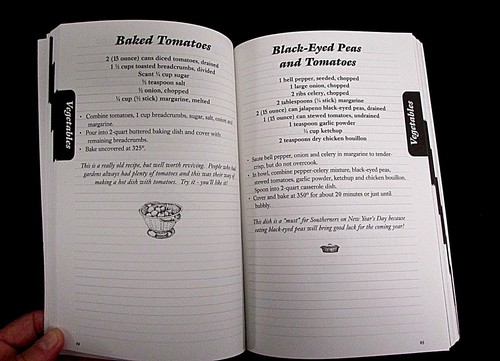 Baked Tomatoes
2 (15 ounce) cans diced tomatoes, drained
1 ½ cups toasted breadcrumbs, divided
Scant ¼ cup sugar
½ teaspoon salt
½ onion, chopped
¼ cup (½ stick) margarine, melted
• Combine tomatoes, 1 cup breadcrumbs, sugar, salt, onion and
margarine.
• Pour into 2-quart buttered baking dish and cover with
remaining breadcrumbs.
• Bake uncovered at 325°.
This is a really old recipe, but well worth reviving. People who had
gardens always had plenty of tomatoes and this was their way of
making a hot dish with tomatoes. Try it - you'll like it!
Vegetables
Black-Eyed Peas
and Tomatoes
1 bell pepper, seeded, chopped
1 large onion, chopped
2 ribs celery, chopped
2 tablespoons (¼ stick) margarine
2 (15 ounce) cans jalapeno black-eyed peas, drained
1 (15 ounce) can stewed tomatoes, undrained
1 teaspoon garlic powder
¼ cup ketchup
2 teaspoons dry chicken bouillon
• Saute bell pepper, onion and celery in margarine to tender-
crisp, but do not overcook.
• In bowl, combine pepper-celery mixture, black-eyed peas,
stewed tomatoes, garlic powder, ketchup and chicken bouillon.
Spoon into 2-quart casserole dish.
• Cover and bake at 350° for about 20 minutes or just until
bubbly.
This dish is a "must" for Southerners on New Year's Day because
eating black-eyed peas will bring good luck for the coming year!
Vegetables